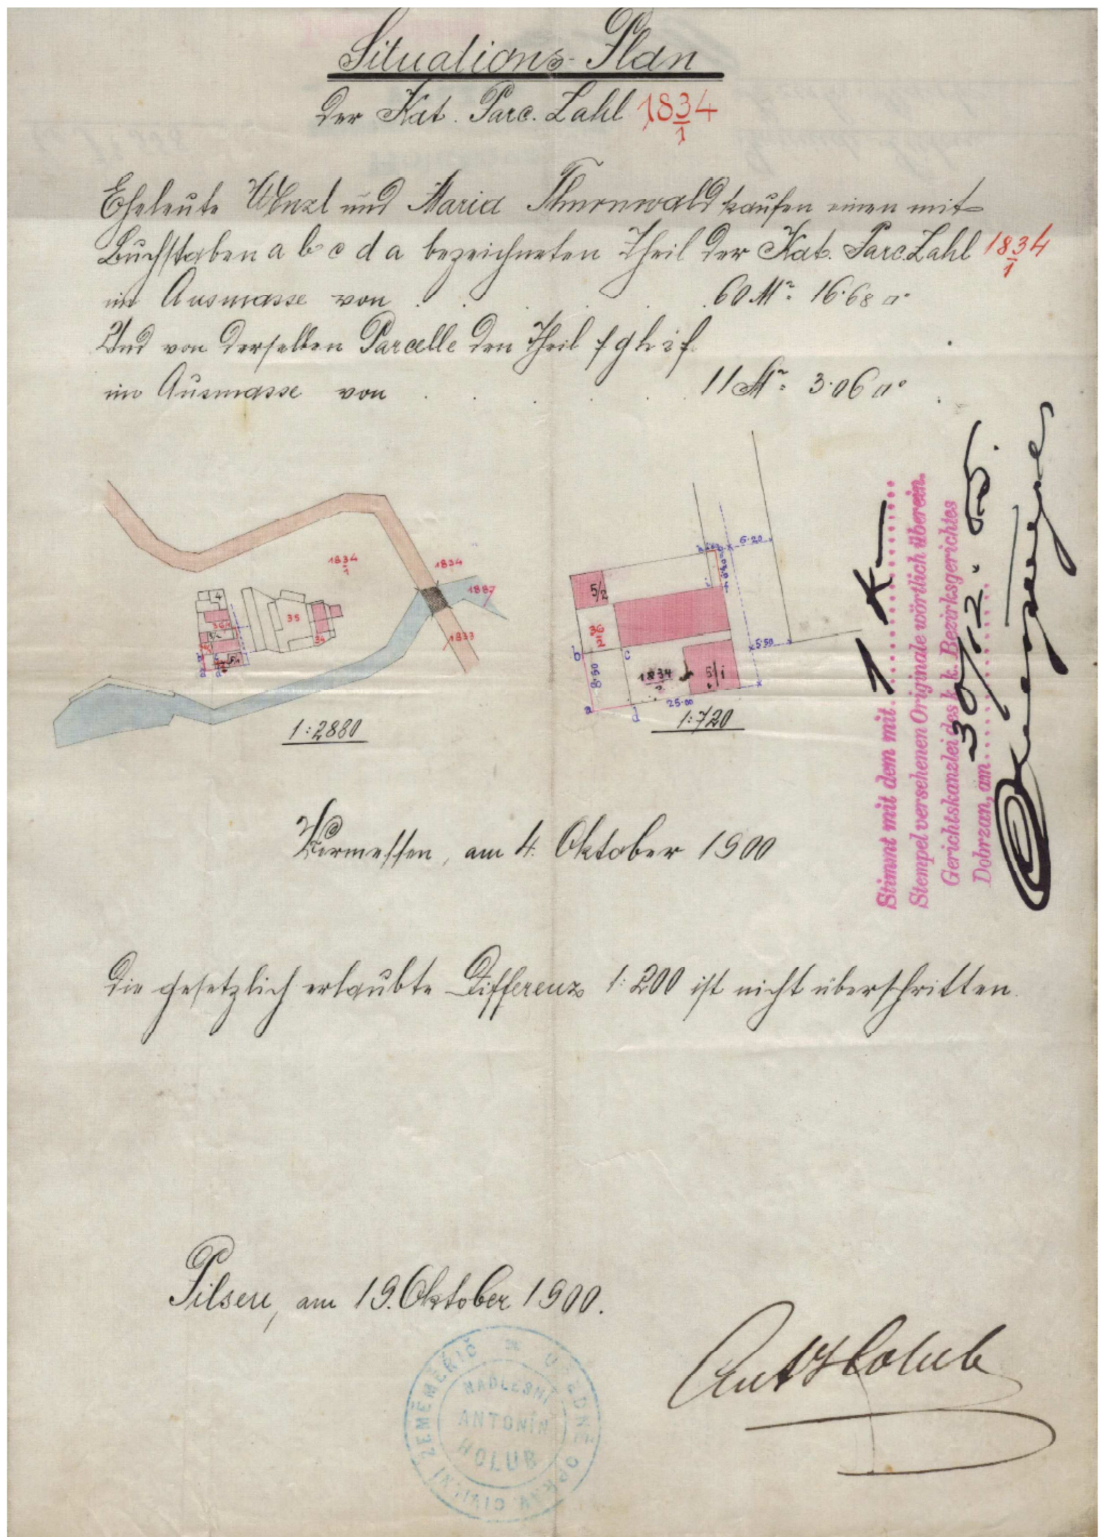 Situations-Plan
Der Kat. Parc. Zahl 1834/1
Eheleute Wenzl und Maria Thurnwald kaufen einen mit
Buchstaben a b c d a bezeichneten Theil der Kat. Parc. Zahl 1834/1
im Ausmasse von . . . . 60 M²: 16·68 □°
Und von derselben Parcelle den Theil f g h i f
im Ausmasse von . . . . 11 M²: 3·06 □°
1834/1
1834
1887
35
1833
1:2880
5·20
5/2
36/2
5·50
b
c
8·50
1834/2
5/1
a
d
25·00
1:720
Stimmt mit dem mit 1 K
Stempel versehenen Originale wörtlich überein.
Gerichtskanzlei des k. k. Bezirksgerichtes
Dobrzan, am 30/12
Vermessen, am 4. Oktober 1900
Die gesetzlich erlaubte Differenz 1:200 ist nicht überschritten.
Pilsen, am 19. Oktober 1900.
Ant Holub
ÚŘEDNĚ OPRÁV. CIVILNÍ ZEMĚMĚŘIČ
NADLESNÍ
ANTONÍN
HOLUB